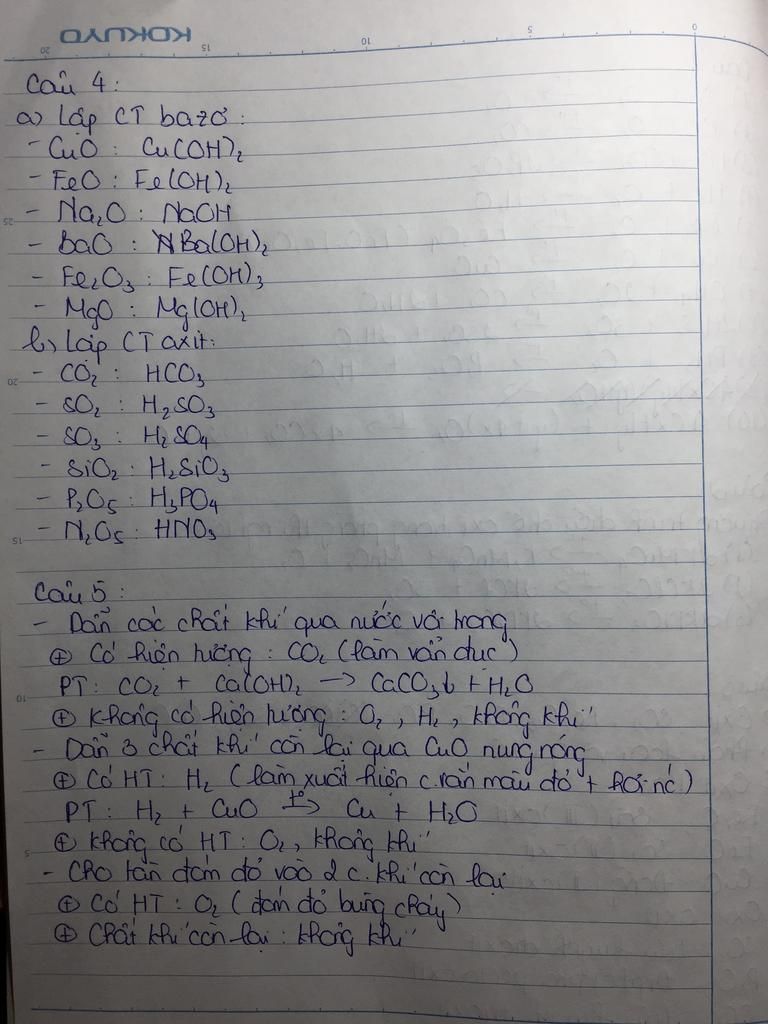 KOKUYO
0 5 10 15 20
Câu 4:
a) Lập CT bazơ:
- CuO : Cu(OH)₂
- FeO : Fe(OH)₂
- Na₂O : NaOH
- BaO : Ba(OH)₂
- Fe₂O₃ : Fe(OH)₃
- MgO : Mg(OH)₂
b) Lập CT axit:
- CO₂ : HCO₃
- SO₂ : H₂SO₃
- SO₃ : H₂SO₄
- SiO₂ : H₂SiO₃
- P₂O₅ : H₃PO₄
- N₂O₅ : HNO₃
Câu 5:
- Dẫn các chất khí qua nước vôi trong
⊕ Có hiện tượng : CO₂ (làm vẩn đục)
PT: CO₂ + Ca(OH)₂ → CaCO₃↓ + H₂O
⊕ Không có hiện tượng : O₂, H₂, không khí
- Dẫn 3 chất khí còn lại qua CuO nung nóng
⊕ Có HT : H₂ (làm xuất hiện c.rắn màu đỏ + hơi nc)
PT: H₂ + CuO t°→ Cu + H₂O
⊕ Không có HT : O₂, không khí
- Cho tàn đóm đỏ vào 2 c.khí còn lại
⊕ Có HT : O₂ (đóm đỏ bùng cháy)
⊕ Chất khí còn lại : không khí
25
20
15
10
5